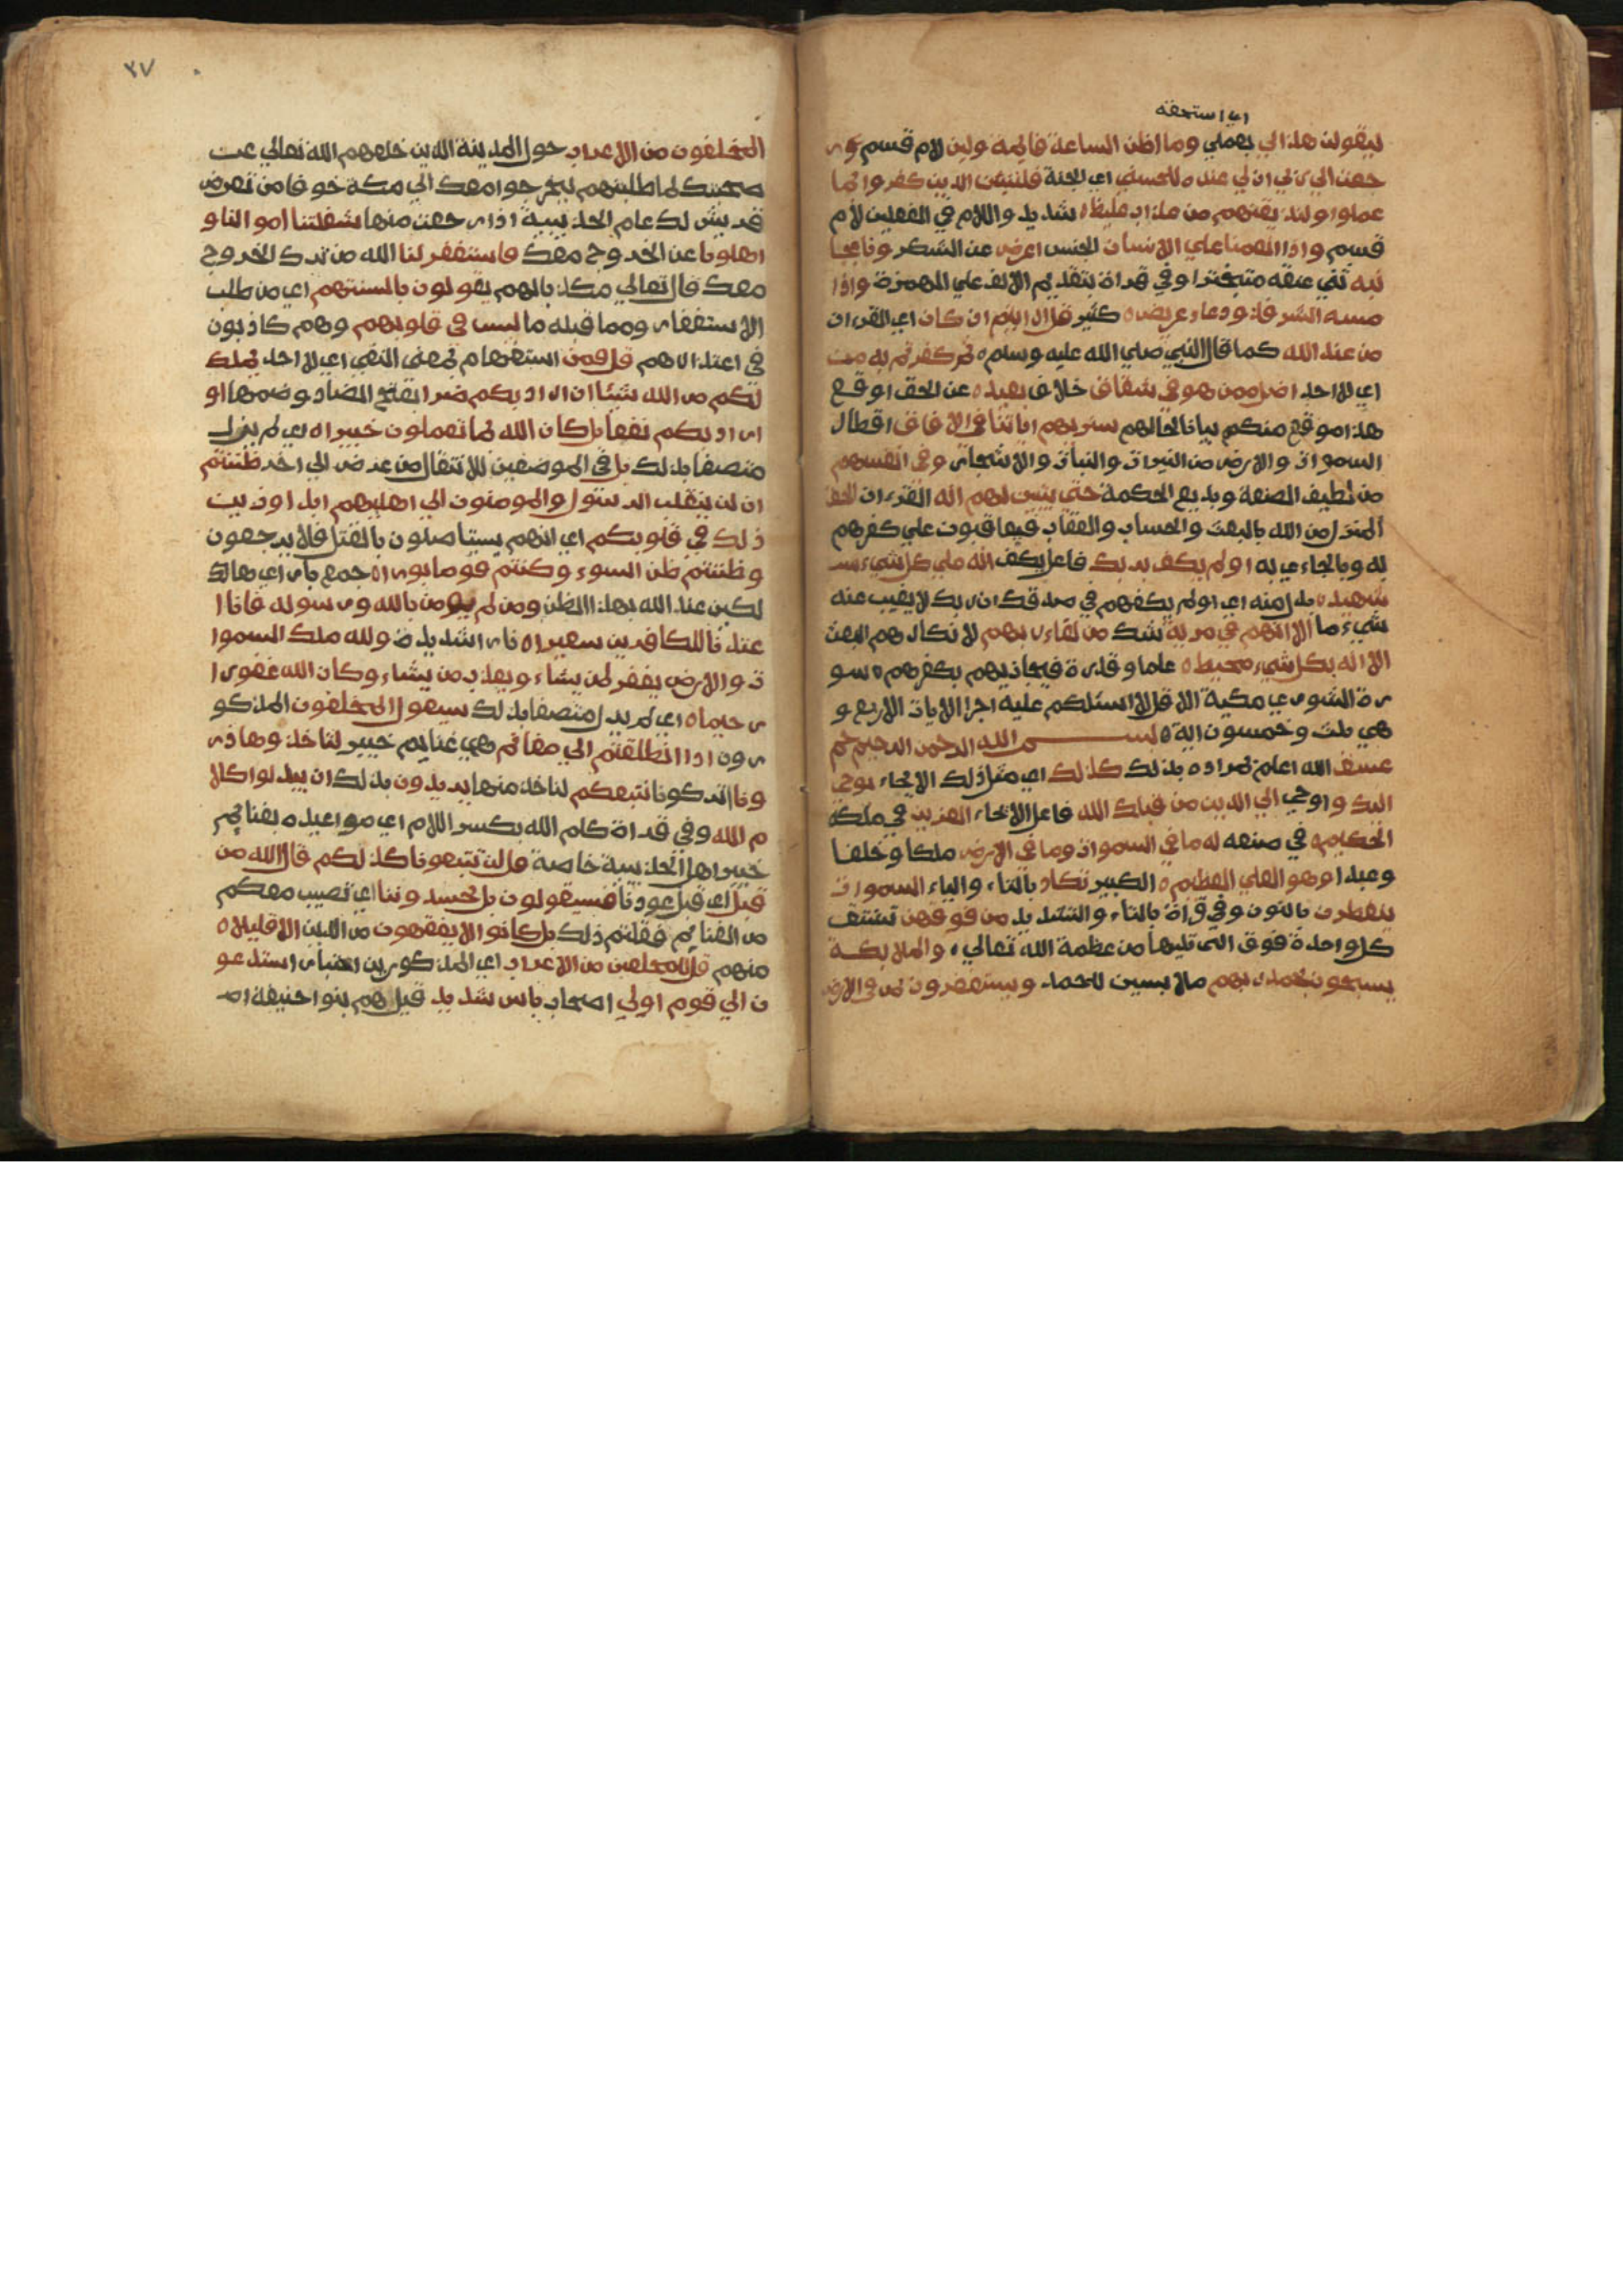 اي استحقه
ليقولن هذا لي بعملي وما اظن الساعة قائمة ولين لام قسم ور
جعت الي ربي ان لي عنده للحسني اي الجنة فلننبئن الذين كفروا بما
عملوا ولنذيقنهم من عذاب غليظ ه شديد واللام في الفعلين لام
قسم واذا انعمنا علي الانسان الجنس اعرض عن الشكر ونا بجا
نبه ثني عطفه متبخترا وفي قراة بتقديم الالف علي الهمزة واذا
مسه الشر فذو دعاء عريض ه كثير قل ارايتم ان كان اي القران
من عند الله كما قال النبي صلي الله عليه وسلم ثم كفرتم به من
اي لا احد اضل ممن هو في شقاق خلاف بعيد ه عن الحق اوقع
هذا موقع منكم بيانا لحالهم سنريهم اياتنا في الافاق اقطار
السموات والارض من النيرات والنبات والاشجار وفي انفسهم
من لطيف الصنعة وبديع الحكمة حتي يتبين لهم انه القرءان الحق
المنزل من الله بالبعث والحساب والعقاب فيعاقبون علي كفرهم
به وبالجاءي به اولم يكف بربك فاعل يكف انه علي كل شيء
شهيد ه بدل منه اي اولم يكفهم في صدقك ان ربك لا يغيب عنه
شيء ما الا انهم في مرية شك من لقاء ربهم لانكارهم البعث
الا انه بكل شيء محيط ه علما وقدرة فيجازيهم بكفرهم ه سو
رة الشوري مكية الا قل لا اسئلكم عليه اجرا الايات الاربع و
هي ثلث وخمسون اية ه بسم الله الرحمن الرحيم حم
عسق الله اعلم بمراده بذلك كذلك اي مثل ذلك الايحاء يوحي
اليك واوحي الي الذين من قبلك الله فاعل الايحاء العزيز في ملكه
الحكيم ه في صنعه له ما في السموات وما في الارض ملكا وخلقا
وعبدا وهو العلي العظيم ه الكبير تكاد بالتاء والياء السموات
ينفطرن بالنون وفي قراة بالتاء والتشديد من فوقهن تنشق
كل واحدة فوق التي تليها من عظمة الله تعالي ه والملايكة
يسبحون بحمد ربهم ملابسين للحمد ويستغفرون لمن في الارض
٣٧
المخلفون من الاعراب حول المدينة الذين خلفهم الله تعالي عن
صحبتك لما طلبتهم ليخرجوا معك الي مكة خوفا من تعرض
قريش لك عام الحديبية اذا رجعت منها شغلتنا اموالنا و
اهلونا عن الخروج معك فاستغفر لنا الله من ترك الخروج
معك قال تعالي مكذبا لهم يقولون بالسنتهم اي من طلب
الاستغفار ومما قبله ما ليس في قلوبهم وهم كاذبون
في اعتذارهم قل فمن استفهام بمعني النفي اي لا احد يملك
لكم من الله شيئا ان اراد بكم ضرا بفتح الضاد وضمها او
اراد بكم نفعا بل كان الله بما تعملون خبيرا ه اي لم يزل
متصفا بذلك بل في الموضعين للانتقال من غرض الي اخر ظننتم
ان لن ينقلب الرسول والمومنون الي اهليهم ابدا وزين
ذلك في قلوبكم اي انهم يستاصلون بالقتل فلا يرجعون
وظننتم ظن السوء وكنتم قوما بورا ه جمع باير اي هالك
لكين عند الله بهذا الظن ومن لم يومن بالله ورسوله فانا ا
عتدنا للكافرين سعيرا ه نارا شديدة ولله ملك السموا
ت والارض يغفر لمن يشاء ويعذب من يشاء وكان الله غفورا
رحيما ه اي لم يزل متصفا بذلك سيقول المخلفون المذكو
رون اذا انطلقتم الي مغانم هي غنايم خيبر لتاخذوها ذر
ونا اتركونا نتبعكم لناخذ منها يريدون بذلك ان يبدلوا كلا
م الله وفي قراة كلم الله بكسر اللام اي مواعيده بغنايم
خيبر اهل الحديبية خاصة قل لن تتبعونا كذلكم قال الله من
قبل اي قبل عودنا فسيقولون بل تحسدوننا اي نصيب معكم
من الغنايم فقلتم ذلك بل كانوا لا يفقهون من الدين الا قليلا ه
منهم قل للمخلفين من الاعراب اي المذكورين اختبارا ستدعو
ن الي قوم اولي اصحاب باس شديد قيل هم بنوا حنيفة اص